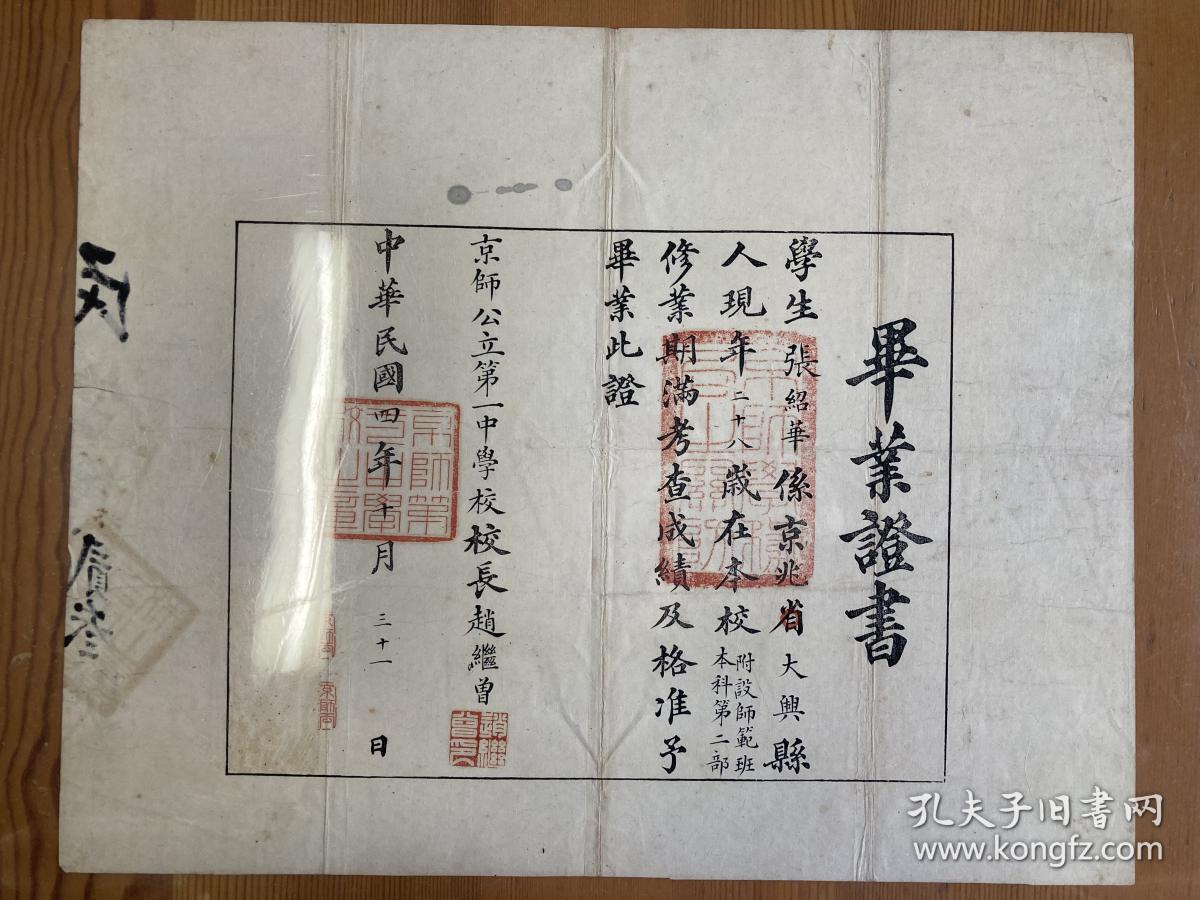 畢業證書
學生張紹華係京兆省大興縣
人現年二十八歲在本校附設師範班本科第二部
修業期滿考查成績及格准予
畢業此證
京師公立第一中學校校長趙繼曾
趙繼曾印
中華民國四年十月三十一日
孔夫子旧书网
www.kongfz.com